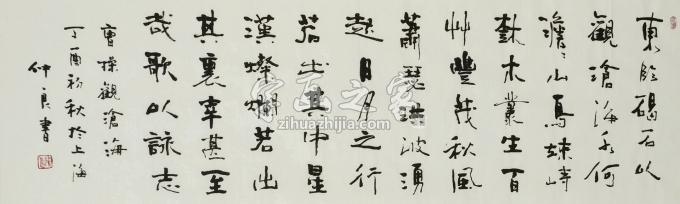 東臨碣石以
觀滄海水何
澹〻山島竦峙
樹木叢生百
艸豐茂秋風
蕭瑟洪波湧
起日月之行
若出其中星
漢燦爛若出
其裏幸甚至
哉歌以詠志
曹操觀滄海
丁酉初秋於上海
仲良書
字画之家
zihuazhijia.com